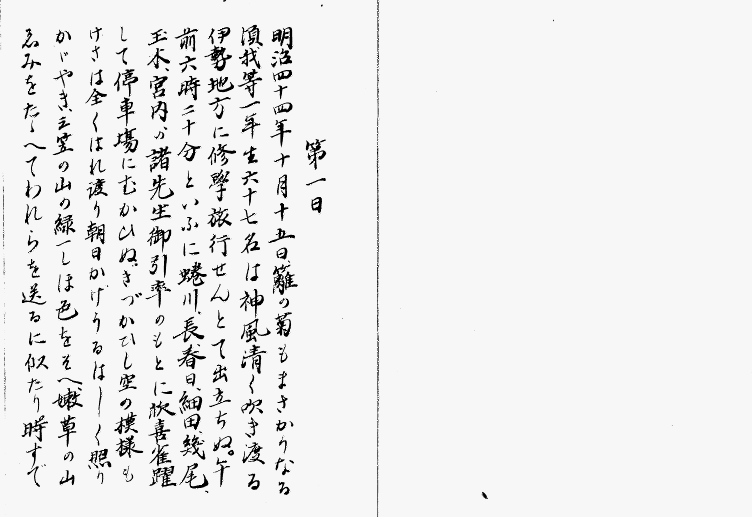 第一日
明治四十四年十月十五日、籬の菊もまさかりなる
頃我等一年生六十七名は神風清く吹き渡る
伊勢地方に修學旅行せんとて出立ちぬ。午
前六時二十分といふに蜷川、長、春日、細田、幾尾、
玉木、宮内の諸先生御引率のもとに欣喜雀躍
して停車場にむかひぬ。きづかひし空の模様も
けさは全くはれ渡り朝日かげうるはしく照り
かゞやき、三笠の山の緑一しほ色をそへ嫩草の山
ゑみをたゝへてわれらを送るに似たり時すで